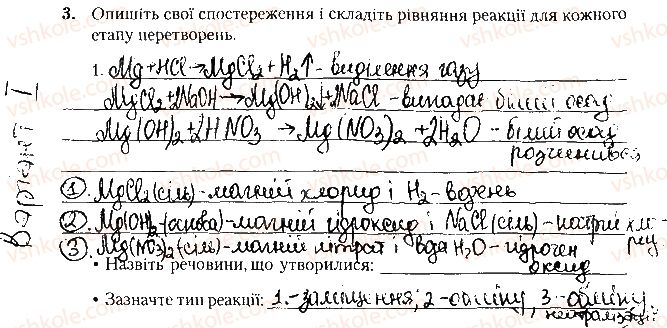 3. Опишіть свої спостереження і складіть рівняння реакції для кожного
етапу перетворень.
1. Mg+HCl→MgCl2+H2↑ - виділення газу
MgCl2+2NaOH→Mg(OH)2↓+2NaCl - випадає білий осад
Mg(OH)2+2HNO3→Mg(NO3)2+2H2O - білий осад
розчинився
Варіант I
① MgCl2(сіль)-магній хлорид і H2-водень
② Mg(OH)2(основа)-магній гідроксид і NaCl(сіль)-натрій хло
рид
③ Mg(NO3)2-(сіль)-магній нітрат і вода H2O-гідроген
оксид
• Назвіть речовини, що утворилися:
• Зазначте тип реакції: 1.-заміщення, 2-обміну, 3.-обміну,
нейтралізації
vshkole.com